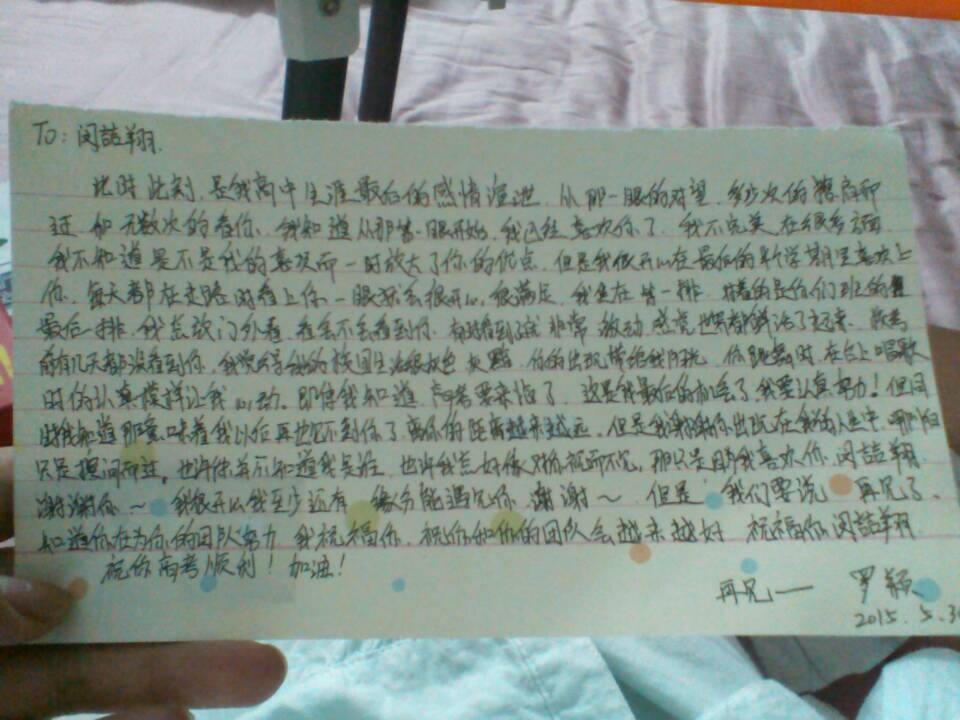 To:闵喆翔.
此时此刻,是我高中生涯最后的感情宣泄.从那一眼的对望,多少次的擦肩而
过.和无数次的看你.我知道从那第一眼开始,我已经喜欢你了.我不完美在很多方面
我不知道是不是我的喜欢而一时放大了你的优点.但是我很开心在最后的半个学期里喜欢上
你.每天都在走路时看上你一眼就会很开心,很满足.我坐在第一排.挨着的是你们班的
最后一排.我总放门外看看会不会看到你.有时看到你就非常激动感觉世界都鲜活了起来.
有几天都没看到你.我觉得我的校园生活很灰色黑暗.你的出现带给我阳光.你跳舞时.在台上唱歌
时的认真模样让我心动.即使我知道高考要来临了.这是我最后的机会了我要认真努力!但同
时我知道那意味着我以后再也见不到你了离你的距离越来越远.但是我谢谢你出现在我的人生中.哪怕
只是擦肩而过.也许你并不知道我是谁.也许我总好像对你视而不见.那只是因为我喜欢你.闵喆翔
谢谢你~ 我很开心我至少还有 缘分能遇见你.谢谢~ 但是 我们要说 再见了.
知道你在为你的团队努力.我祝福你.祝你和你的团队会越来越好.祝福你闵喆翔
祝你高考顺利!加油!
再见一 罗颖
2015.5.30